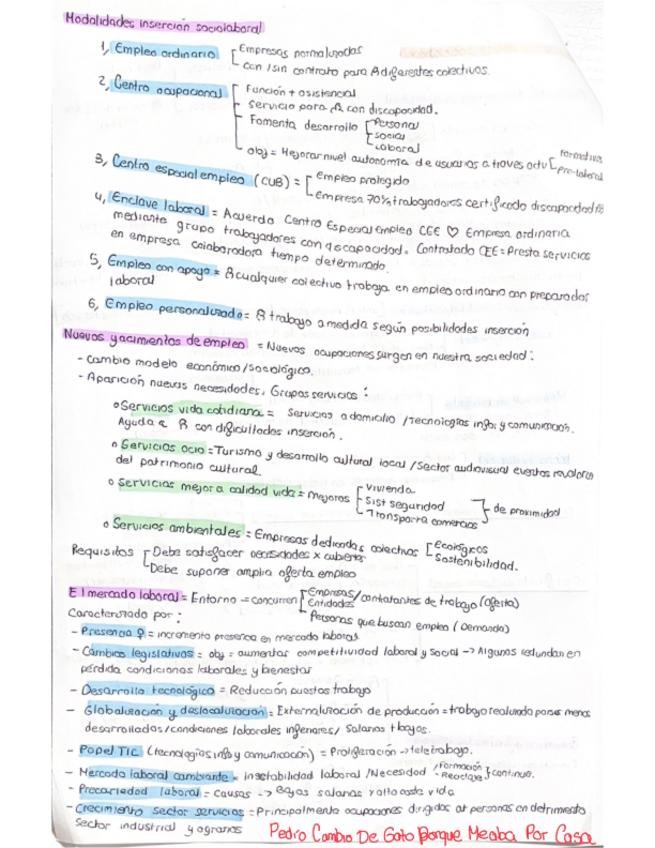 Modalidades inserción sociolaboral
1, Empleo ordinario [Empresas normalizadas
con/sin contrato para diferentes colectivos.
2, Centro ocupacional [Función + asistencial
Servicio para con discapacidad.
Fomenta desarrollo [Personal
Social
Laboral
obj = Mejorar nivel autonomía de usuarios a través [formativa
pre-laboral
3, Centro especial empleo = [Empleo protegido
Empresa 70% trabajadores certificado discapacidad
4, Enclave laboral = Acuerdo Centro Especial Empleo CEE ♡ Empresa ordinaria
mediante grupo trabajadores con discapacidad. Contratado CEE = Presta servicios
en empresa colaboradora tiempo determinado.
5, Empleo con apoyo = cualquier colectivo trabaja en empleo ordinario con preparador
laboral
6, Empleo personalizado = trabajo a medida según posibilidades inserción
Nuevos yacimientos de empleo = Nuevas ocupaciones surgen en nuestra sociedad:
- Cambio modelo económico/sociológico.
- Aparición nuevas necesidades. Grupos servicios:
o Servicios vida cotidiana = Servicios a domicilio / Tecnologías info y comunicación.
Ayuda a con dificultades inserción.
o Servicios ocio = Turismo y desarrollo cultural local / Sector audiovisual eventos
del patrimonio cultural.
o Servicios mejora calidad vida = mejoras [vivienda
Sist seguridad
Transporte comercios } de proximidad
o Servicios ambientales = Empresas dedicadas colectivos [Ecológicos
Sostenibilidad.
Requisitos [Debe satisfacer necesidades x cubiertas
Debe suponer amplia oferta empleo
El mercado laboral = Entorno = concurren [Empresas/
Entidades contratantes de trabajo (oferta)
Personas que buscan empleo (Demanda)
Caracterizado por:
- Presencia ♀ = incremento presencia en mercado laboral
- Cambios legislativos = obj = aumentar competitividad laboral y social -> Algunos redundan en
pérdida condiciones laborales y bienestar
- Desarrollo tecnológico = Reducción puestos trabajo
- Globalización y deslocalización = Externalización de producción = trabajo realizado países menos
desarrollados/condiciones laborales inferiores/ Salarios + bajos.
- Papel TIC (tecnologías info y comunicación) = Proliferación -> teletrabajo.
- Mercado laboral cambiante = inestabilidad laboral / Necesidad / Formación
- Reciclaje } continuo.
- Precariedad laboral = Causas -> Bajos salarios y alto coste vida
- Crecimiento sector servicios = Principalmente ocupaciones dirigidas a personas en detrimento
sector industrial y agrario
Pedro Cambio De Gato Porque Meaba Por Casa